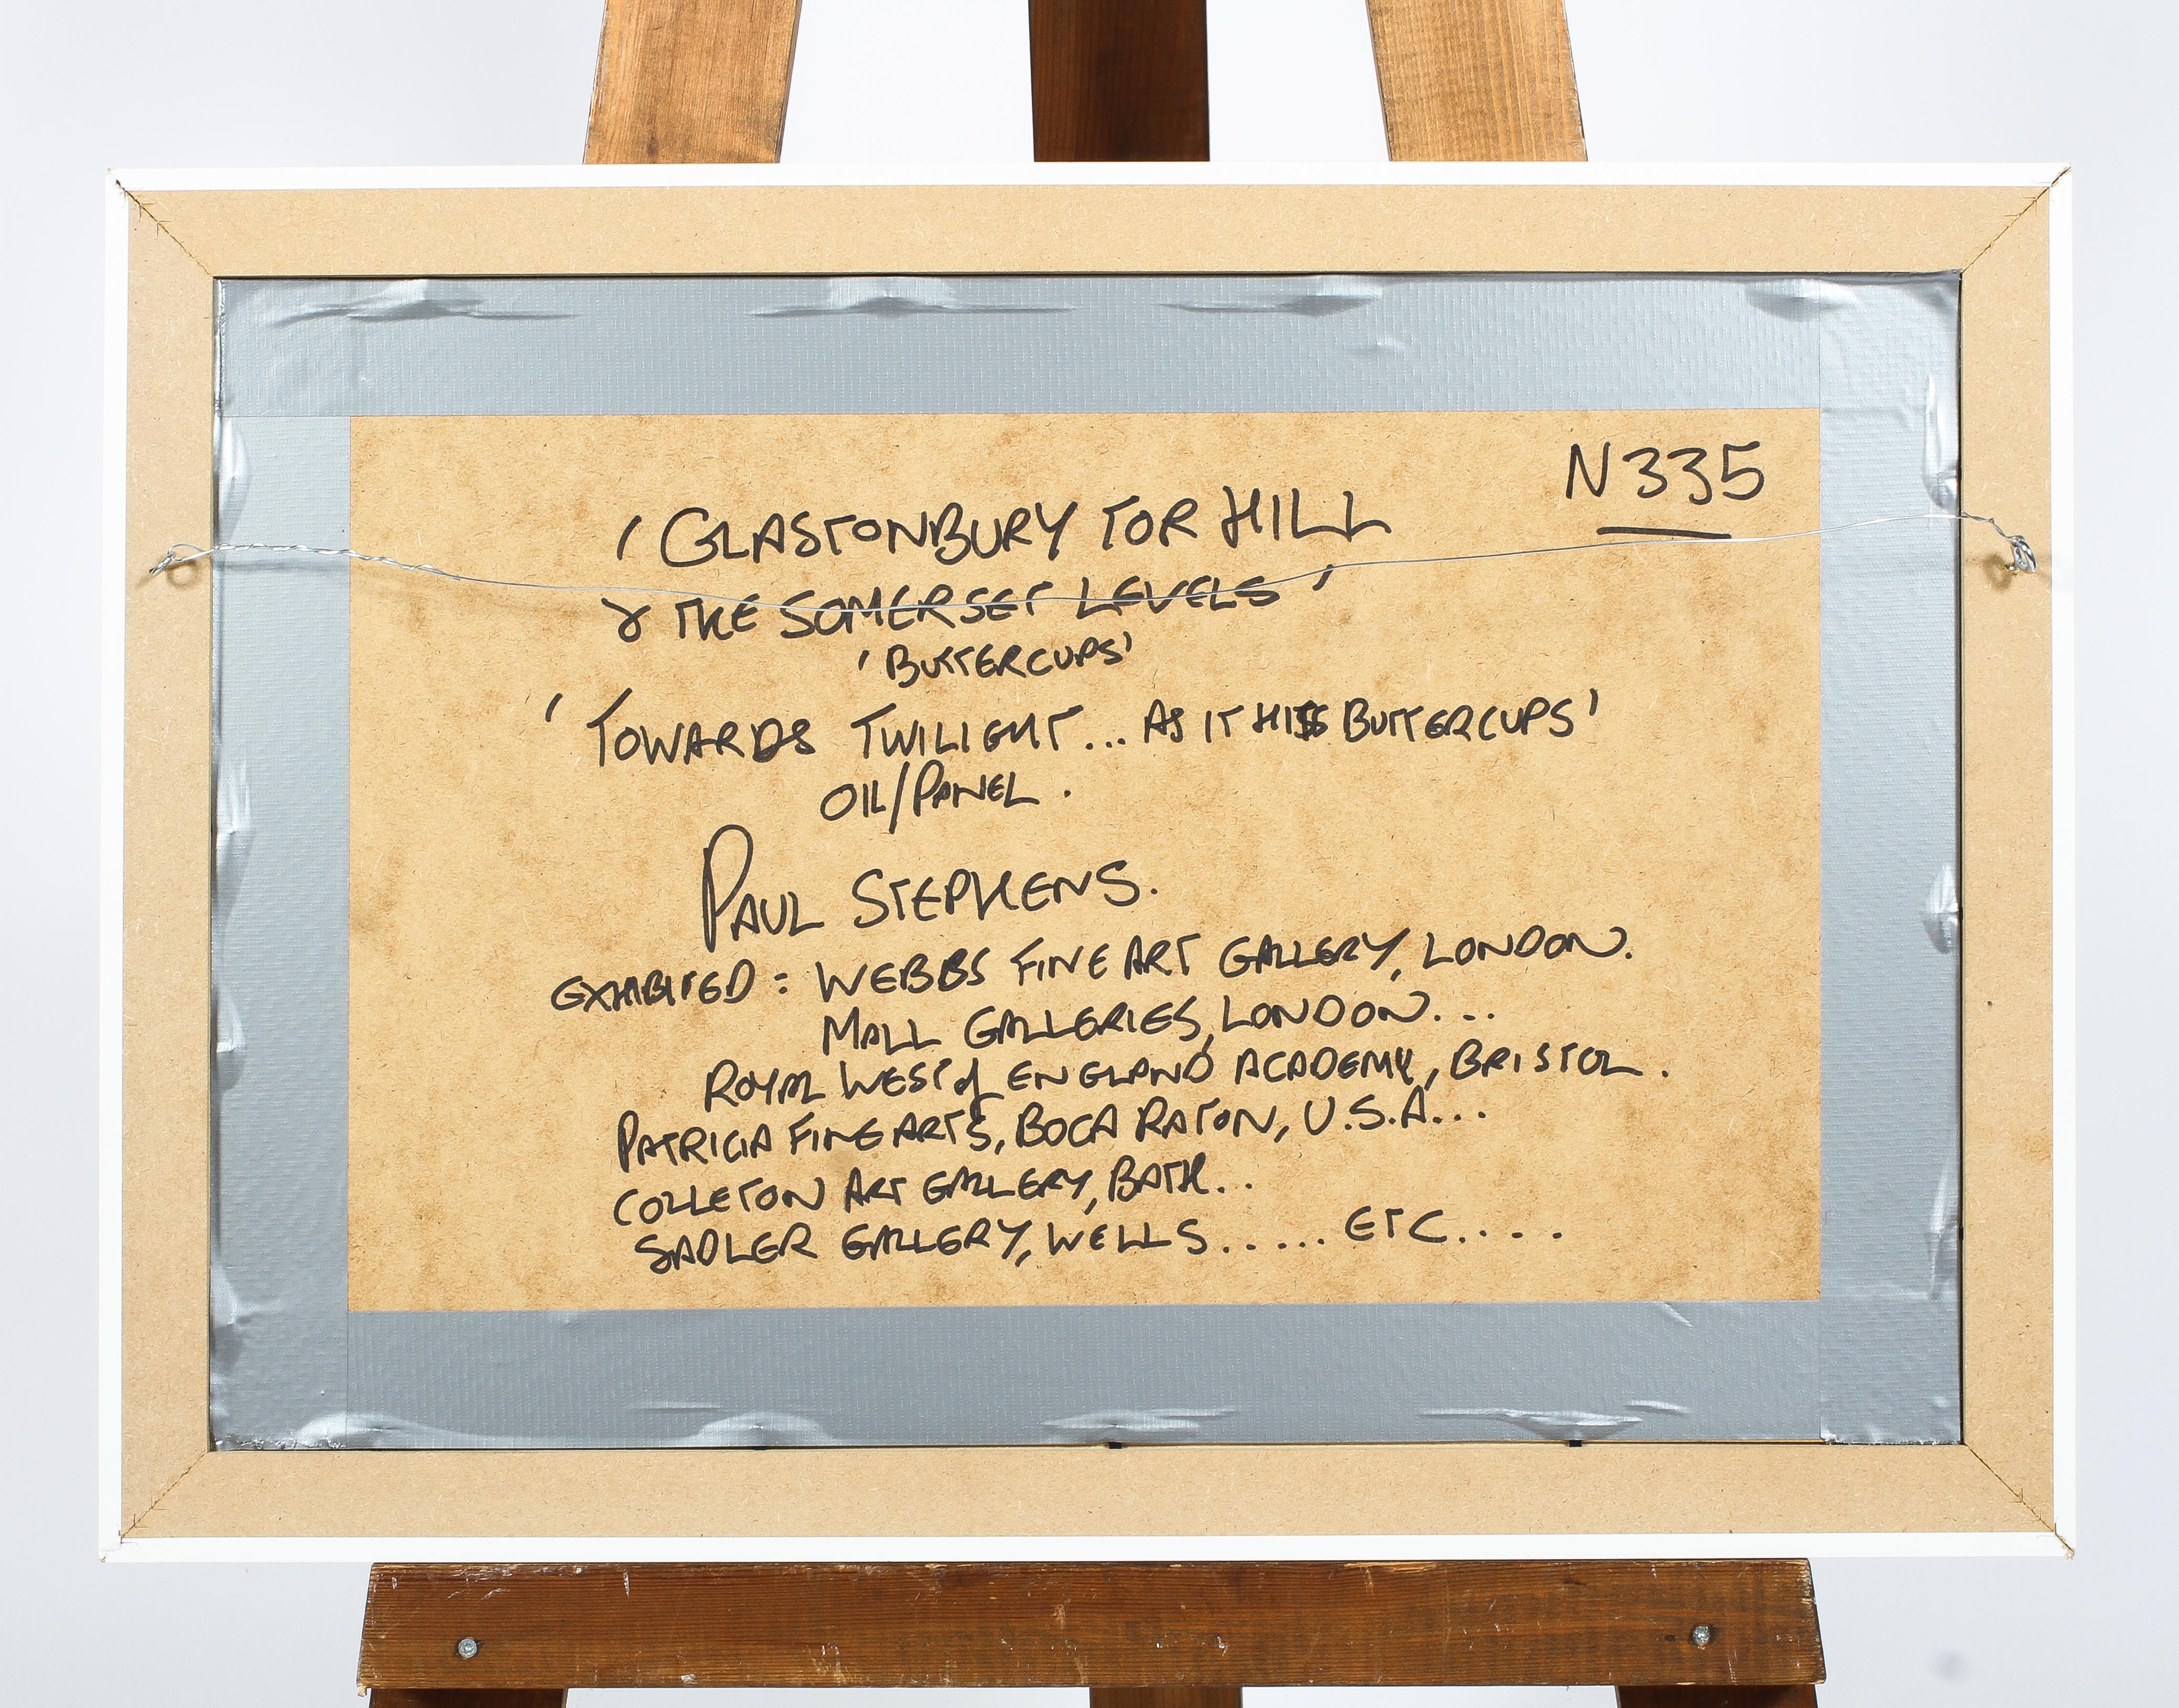 N335
'GLASTONBURY TOR HILL
& THE SOMERSET LEVELS'
'BUTTERCUPS'
'TOWARDS TWILIGHT... AS IT HITS BUTTERCUPS'
OIL/PANEL.
PAUL STEPHENS.
EXHIBITED: WEBBS FINE ART GALLERY, LONDON.
MALL GALLERIES, LONDON...
ROYAL WEST of ENGLAND ACADEMY, BRISTOL.
PATRICIA FINE ARTS, BOCA RATON, U.S.A...
COLLETON ART GALLERY, BATH..
SADLER GALLERY, WELLS..... ETC....